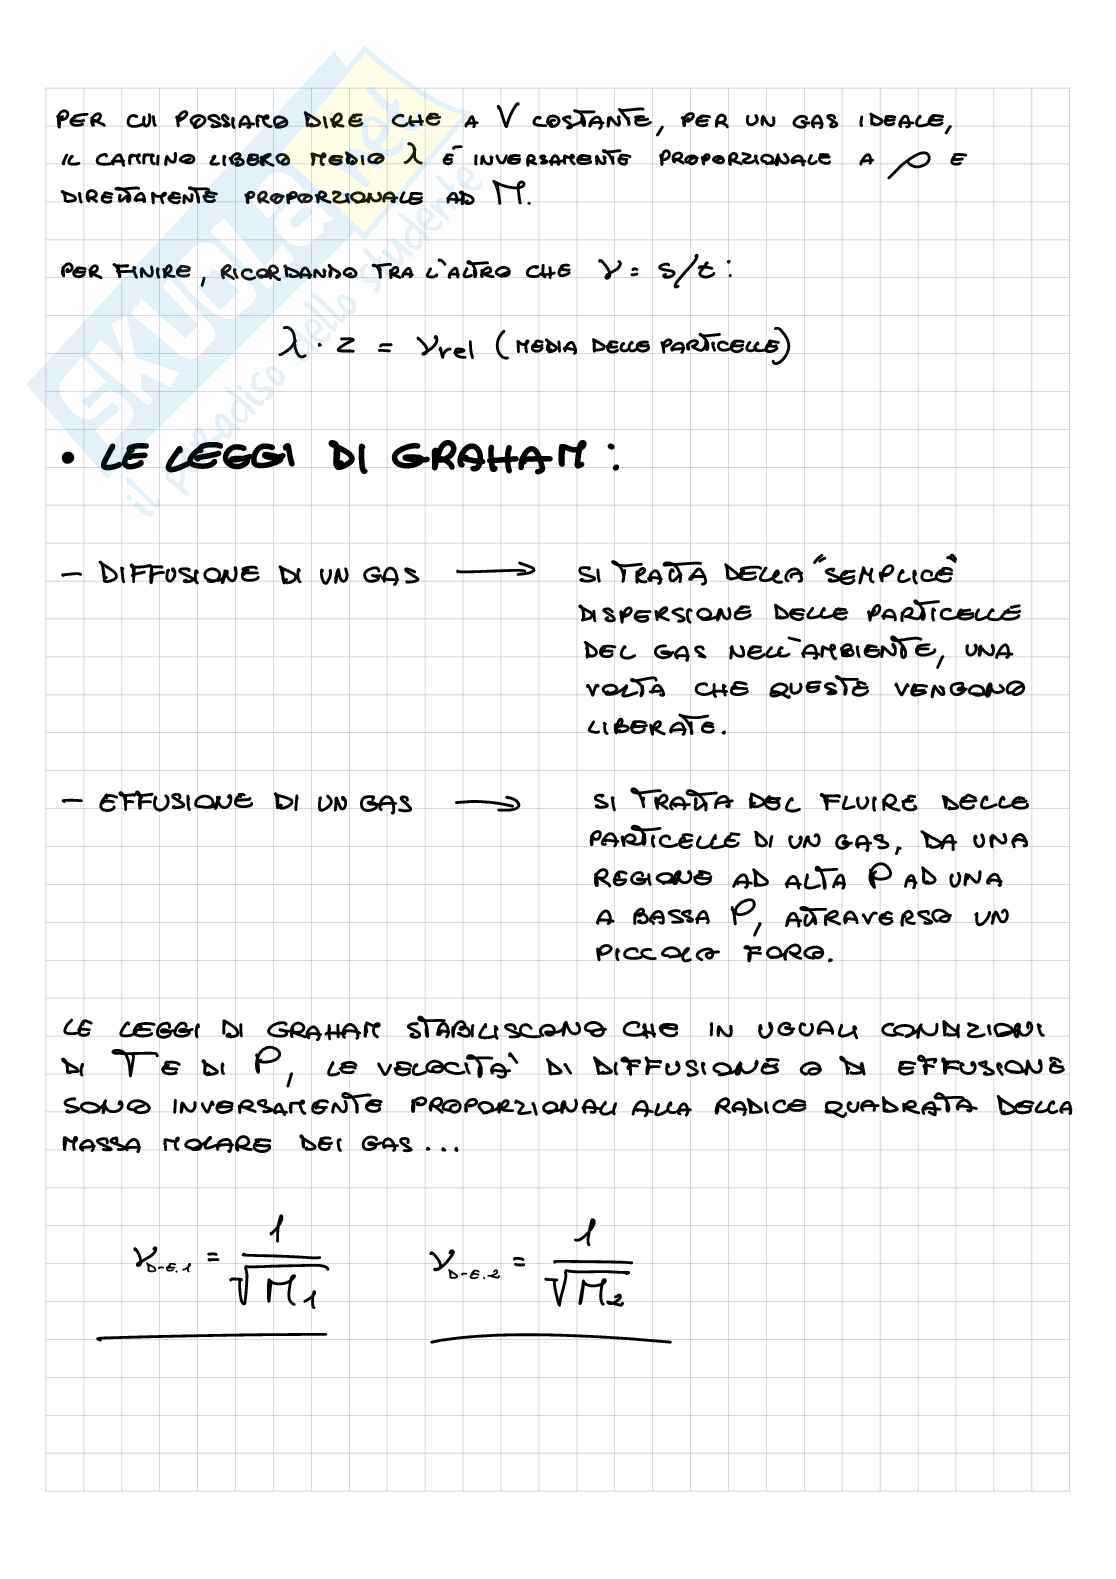 PER CUI POSSIAMO DIRE CHE A V COSTANTE, PER UN GAS IDEALE,
IL CAMMINO LIBERO MEDIO λ É INVERSAMENTE PROPORZIONALE A ρ E
DIRETTAMENTE PROPORZIONALE AD M.
PER FINIRE, RICORDANDO TRA L'ALTRO CHE v = s/t :
λ · z = vrel (MEDIA DELLE PARTICELLE)
• LE LEGGI DI GRAHAM :
– DIFFUSIONE DI UN GAS → SI TRATTA DELLA "SEMPLICE"
DISPERSIONE DELLE PARTICELLE
DEL GAS NELL'AMBIENTE, UNA
VOLTA CHE QUESTE VENGONO
LIBERATE.
– EFFUSIONE DI UN GAS → SI TRATTA DEL FLUIRE DELLE
PARTICELLE DI UN GAS, DA UNA
REGIONE AD ALTA P AD UNA
A BASSA P, ATTRAVERSO UN
PICCOLO FORO.
LE LEGGI DI GRAHAM STABILISCONO CHE IN UGUALI CONDIZIONI
DI T E DI P, LE VELOCITÀ DI DIFFUSIONE O DI EFFUSIONE
SONO INVERSAMENTE PROPORZIONALI ALLA RADICE QUADRATA DELLA
MASSA MOLARE DEI GAS...
v D-E.1 = 1/√M1 v D-E.2 = 1/√M2
SKUOLA.net
il paradiso dello studente